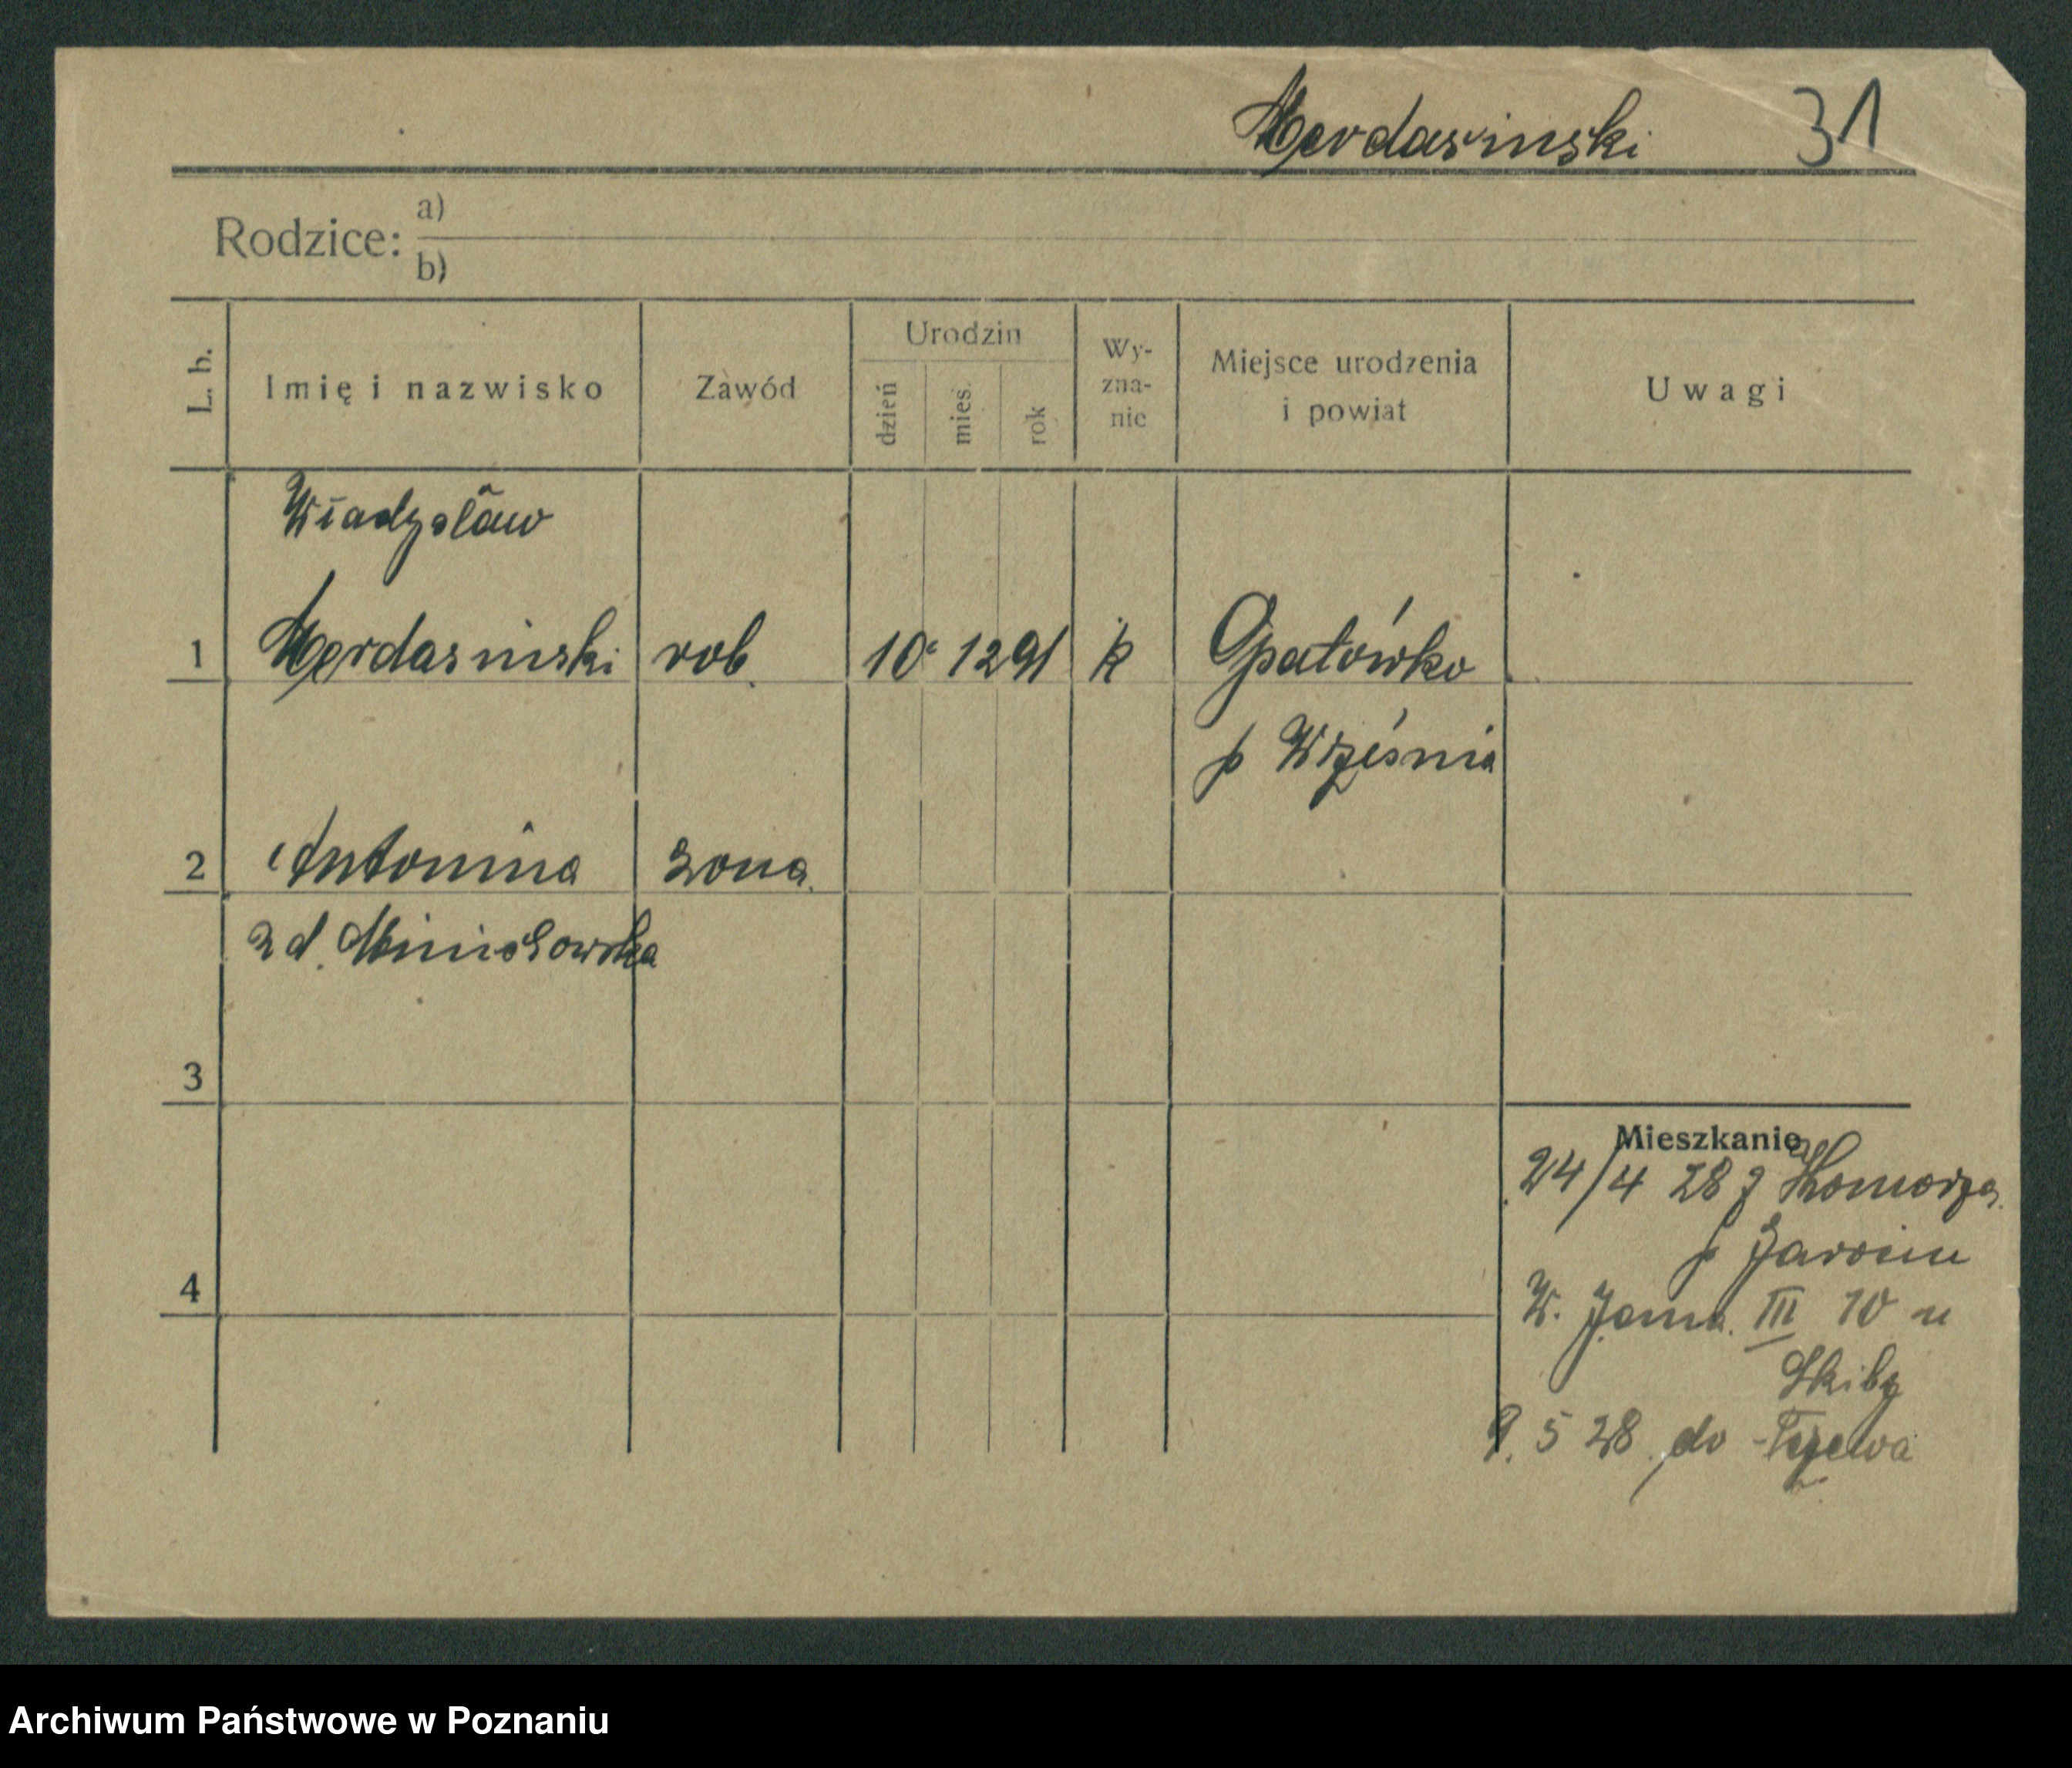 Merdasinski 31
Rodzice: a)
b)
L. b.
Imię i nazwisko
Zawód
Urodzin
dzień
mies.
rok
Wy-
zna-
nie
Miejsce urodzenia
i powiat
Uwagi
Władysław
1 Merdasinski rob. 10 12 91 k Opatówko
p Września
2 Antonina zona
z d.
3
Mieszkanie
24/4 28 z
p Jarocin
4
W. Jana III 10 u
Skiby
9. 5 28 do
Archiwum Państwowe w Poznaniu